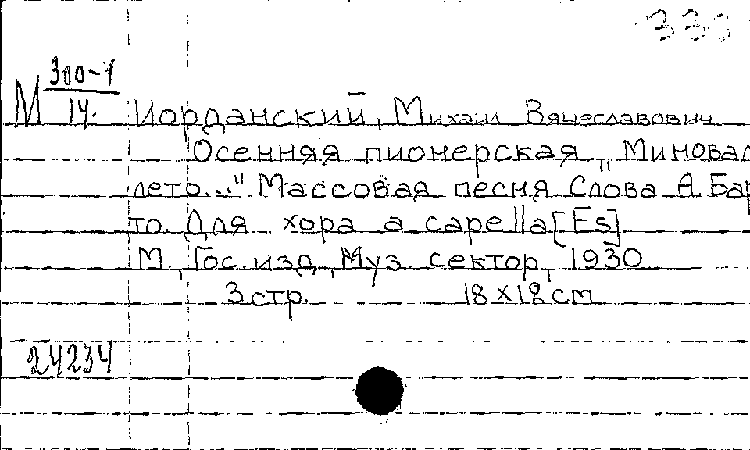 333
М 300-1
14.
Иорданский, Михаил Вячеславович
"Осенняя пионерская „Миновал
лето..." Массовая песня Слова А Бар
то. Для хора a capella [Es]
М, Гос. изд, Муз. сектор, 1930
3 стр. 18х12 см
24234